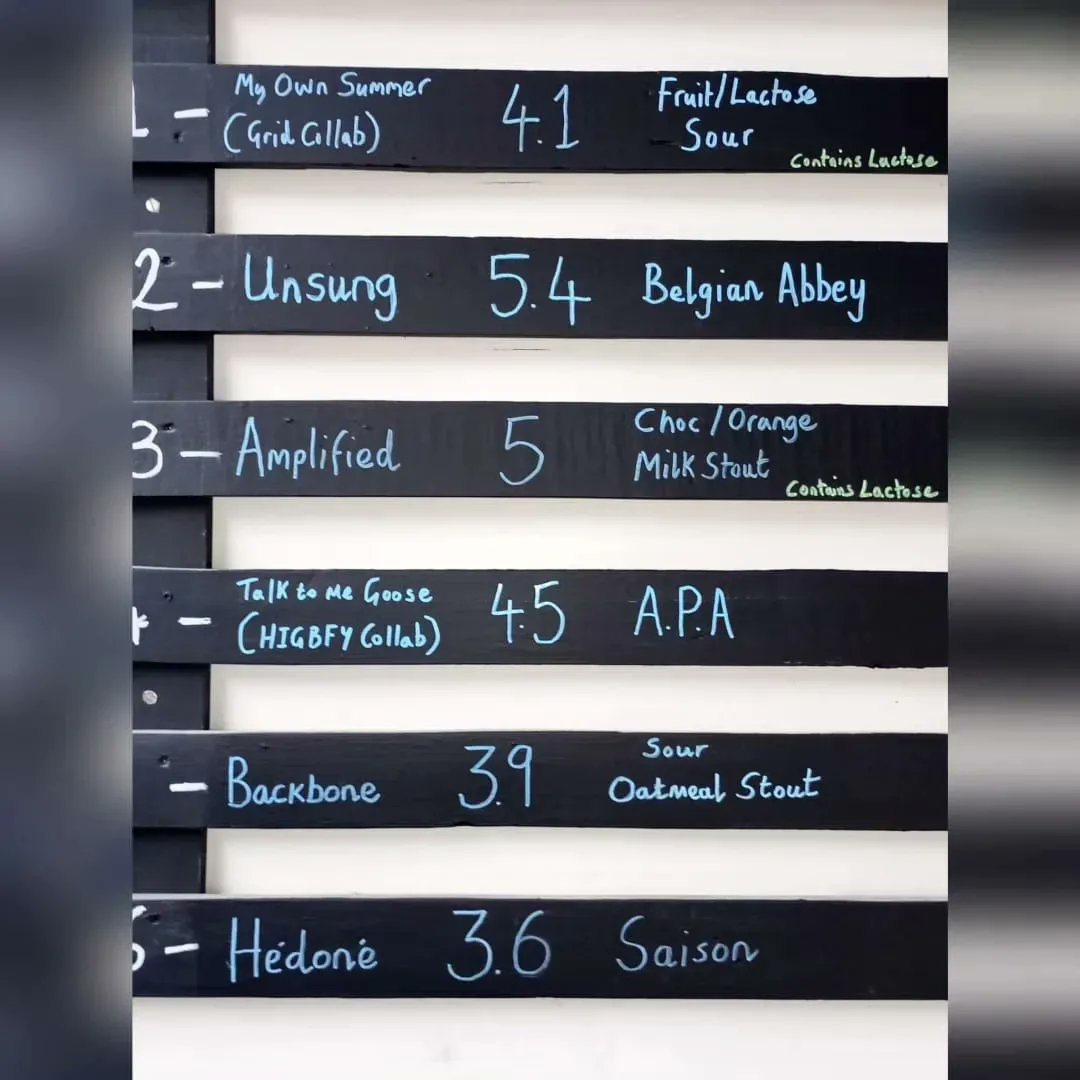 1 - My Own Summer
(Grid Collab) 4.1 Fruit/Lactose
Sour
Contains Lactose
2 - Unsung 5.4 Belgian Abbey
3 - Amplified 5 Choc/Orange
Milk Stout
Contains Lactose
- Talk to Me Goose
(HIGBFY Collab) 4.5 A.P.A
- Backbone 3.9 Sour
Oatmeal Stout
- Hédoné 3.6 Saison